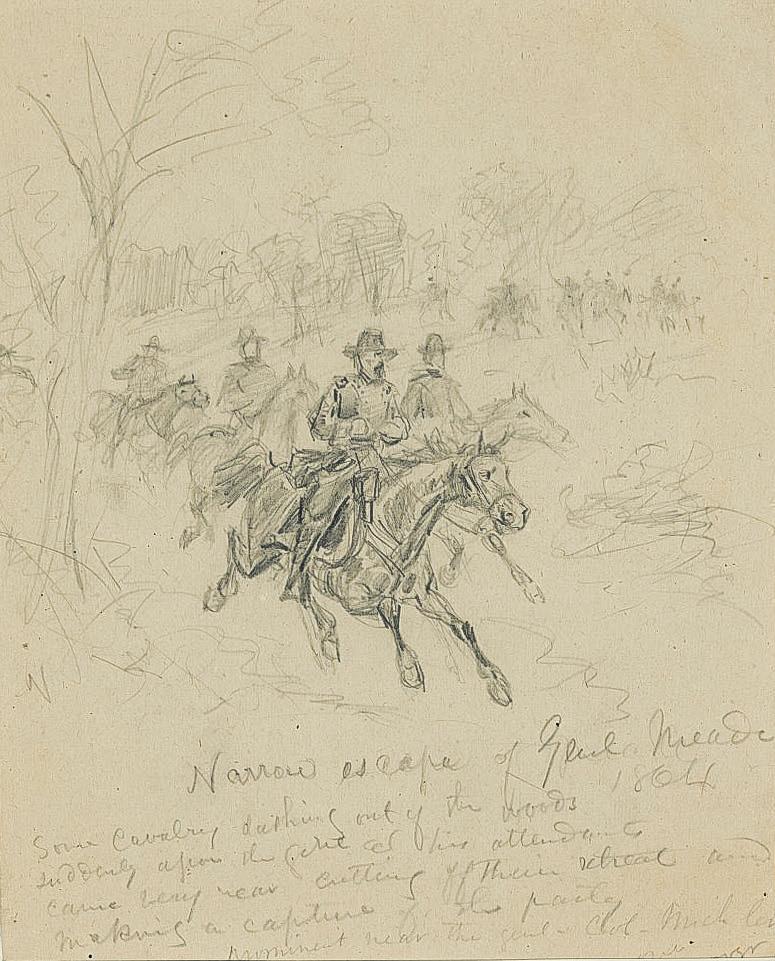 Narrow escape of Genl. Meade
1864
Some Cavalry dashing out of the woods
suddenly upon the Genl & his attendants
came very near cutting off their retreat and
making a capture of the party
prominent near the genl - Col - Mich